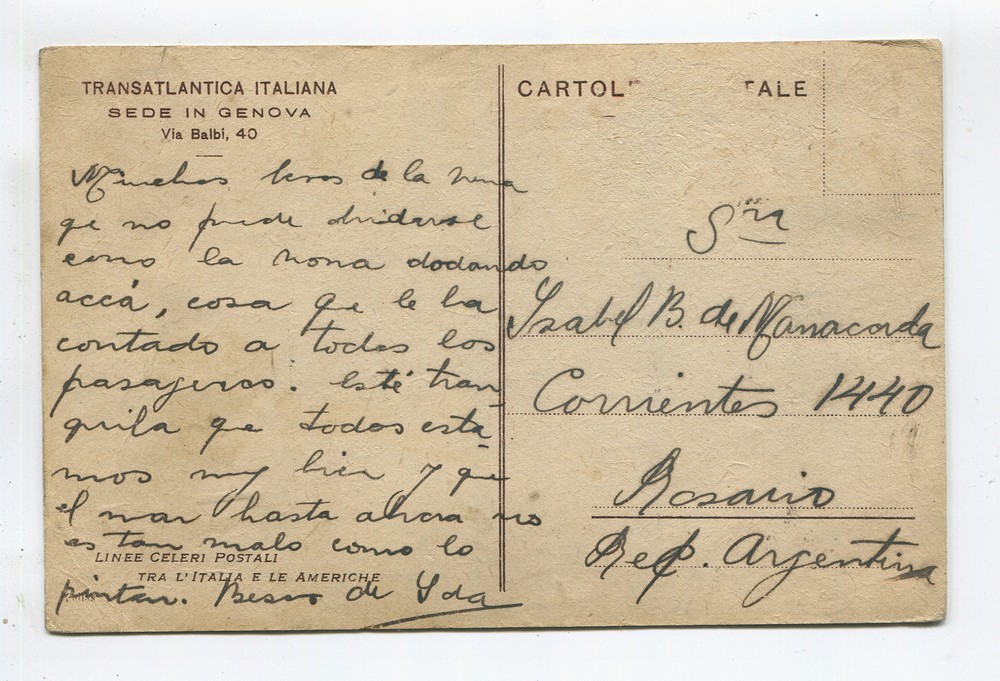 TRANSATLANTICA ITALIANA
SEDE IN GENOVA
Via Balbi, 40
Muchos besos de la nena
qe no puede olvidarse
como la nona
accá, cosa qe le ha
contado a todos los
pasajeros. Esté tran
quila que todos esta-
mos muy bien y que
el mar hasta ahora no
es tan malo como lo
pintan. Besos de Ida
LINEE CELERI POSTALI
TRA L'ITALIA E LE AMERICHE
CARTOL TALE
Sra
Isabel B. de Manacorda
Corrientes 1440
Rosario
Rep. Argentina